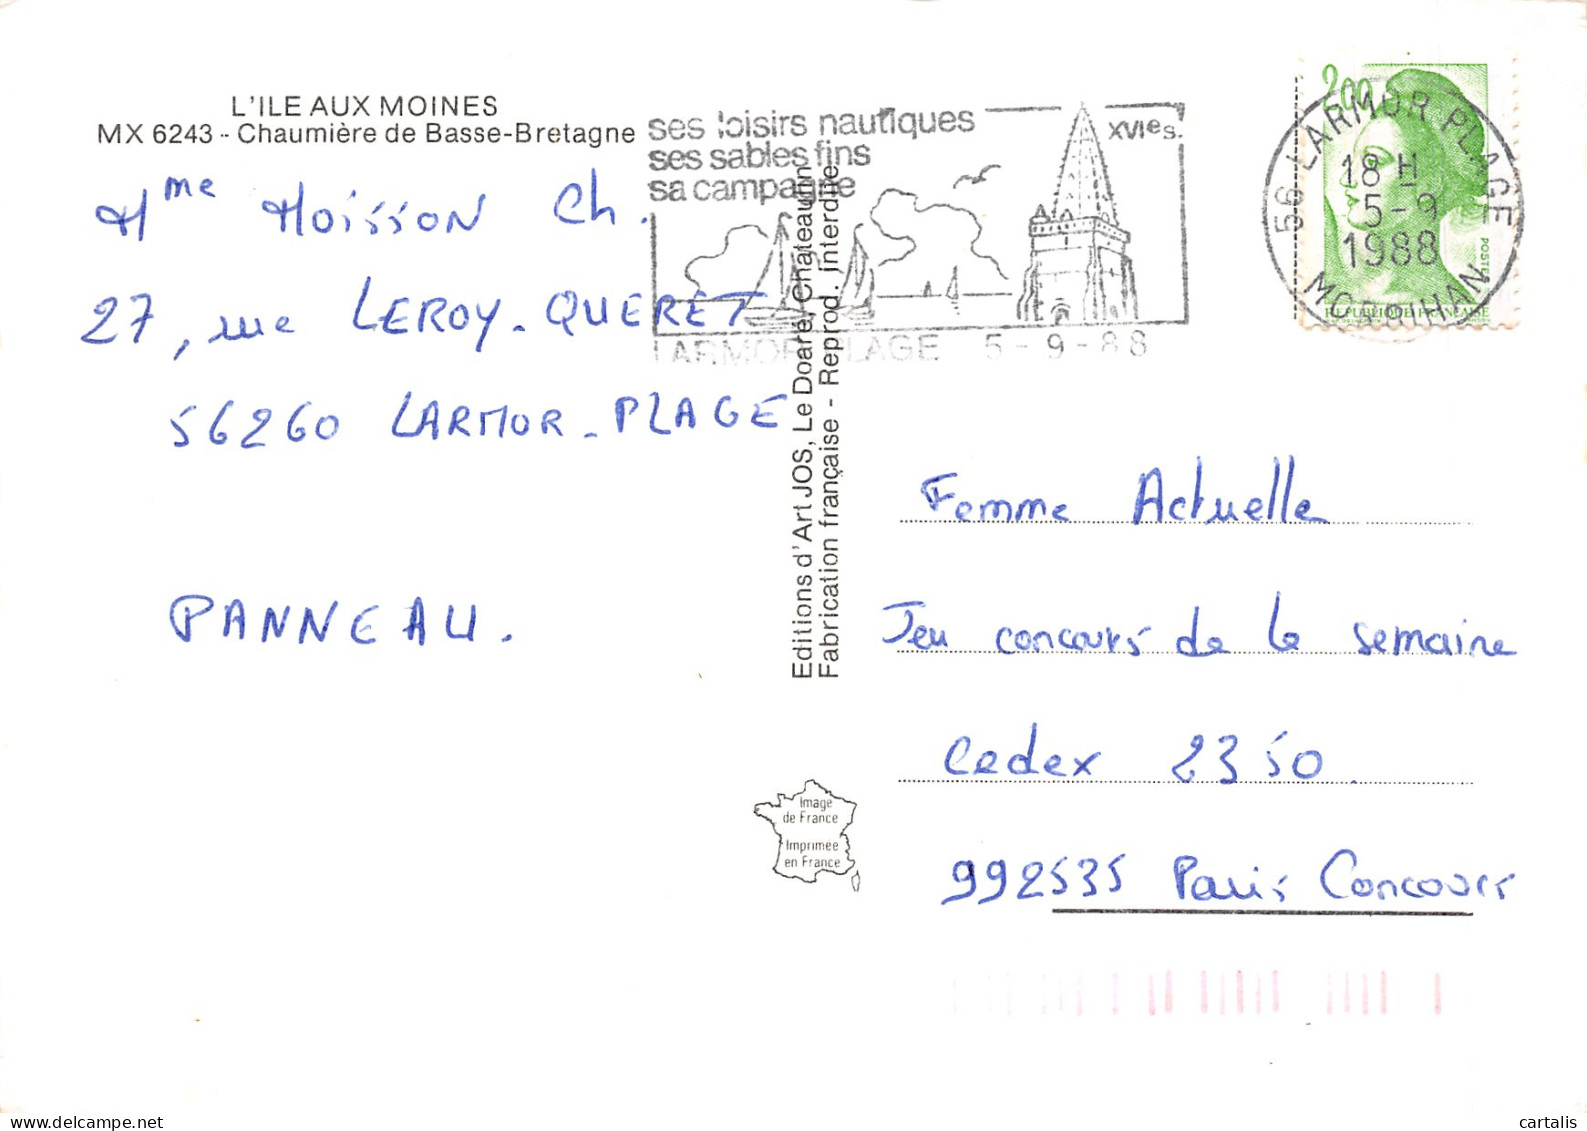 L'ILE AUX MOINES
MX 6243 - Chaumière de Basse-Bretagne
Mme Moisson Ch.
27, rue LEROY-QUERET
56260 LARMOR-PLAGE
PANNEAU.
ses loisirs nautiques
ses sables fins
sa campagne
XVIes.
LARMOR PLAGE 5-9-88
Editions d'Art JOS, Le Doaré, Châteaulin
Fabrication française - Reprod. Interdite
2,00
56 LARMOR PLAGE
18 H
5-9
1988
MORBIHAN
POSTES
REPUBLIQUE FRANÇAISE
Femme Actuelle
Jeu concours de la semaine
Cedex 2350.
992535 Paris Concours
Image
de France
Imprimée
en France
cartalis